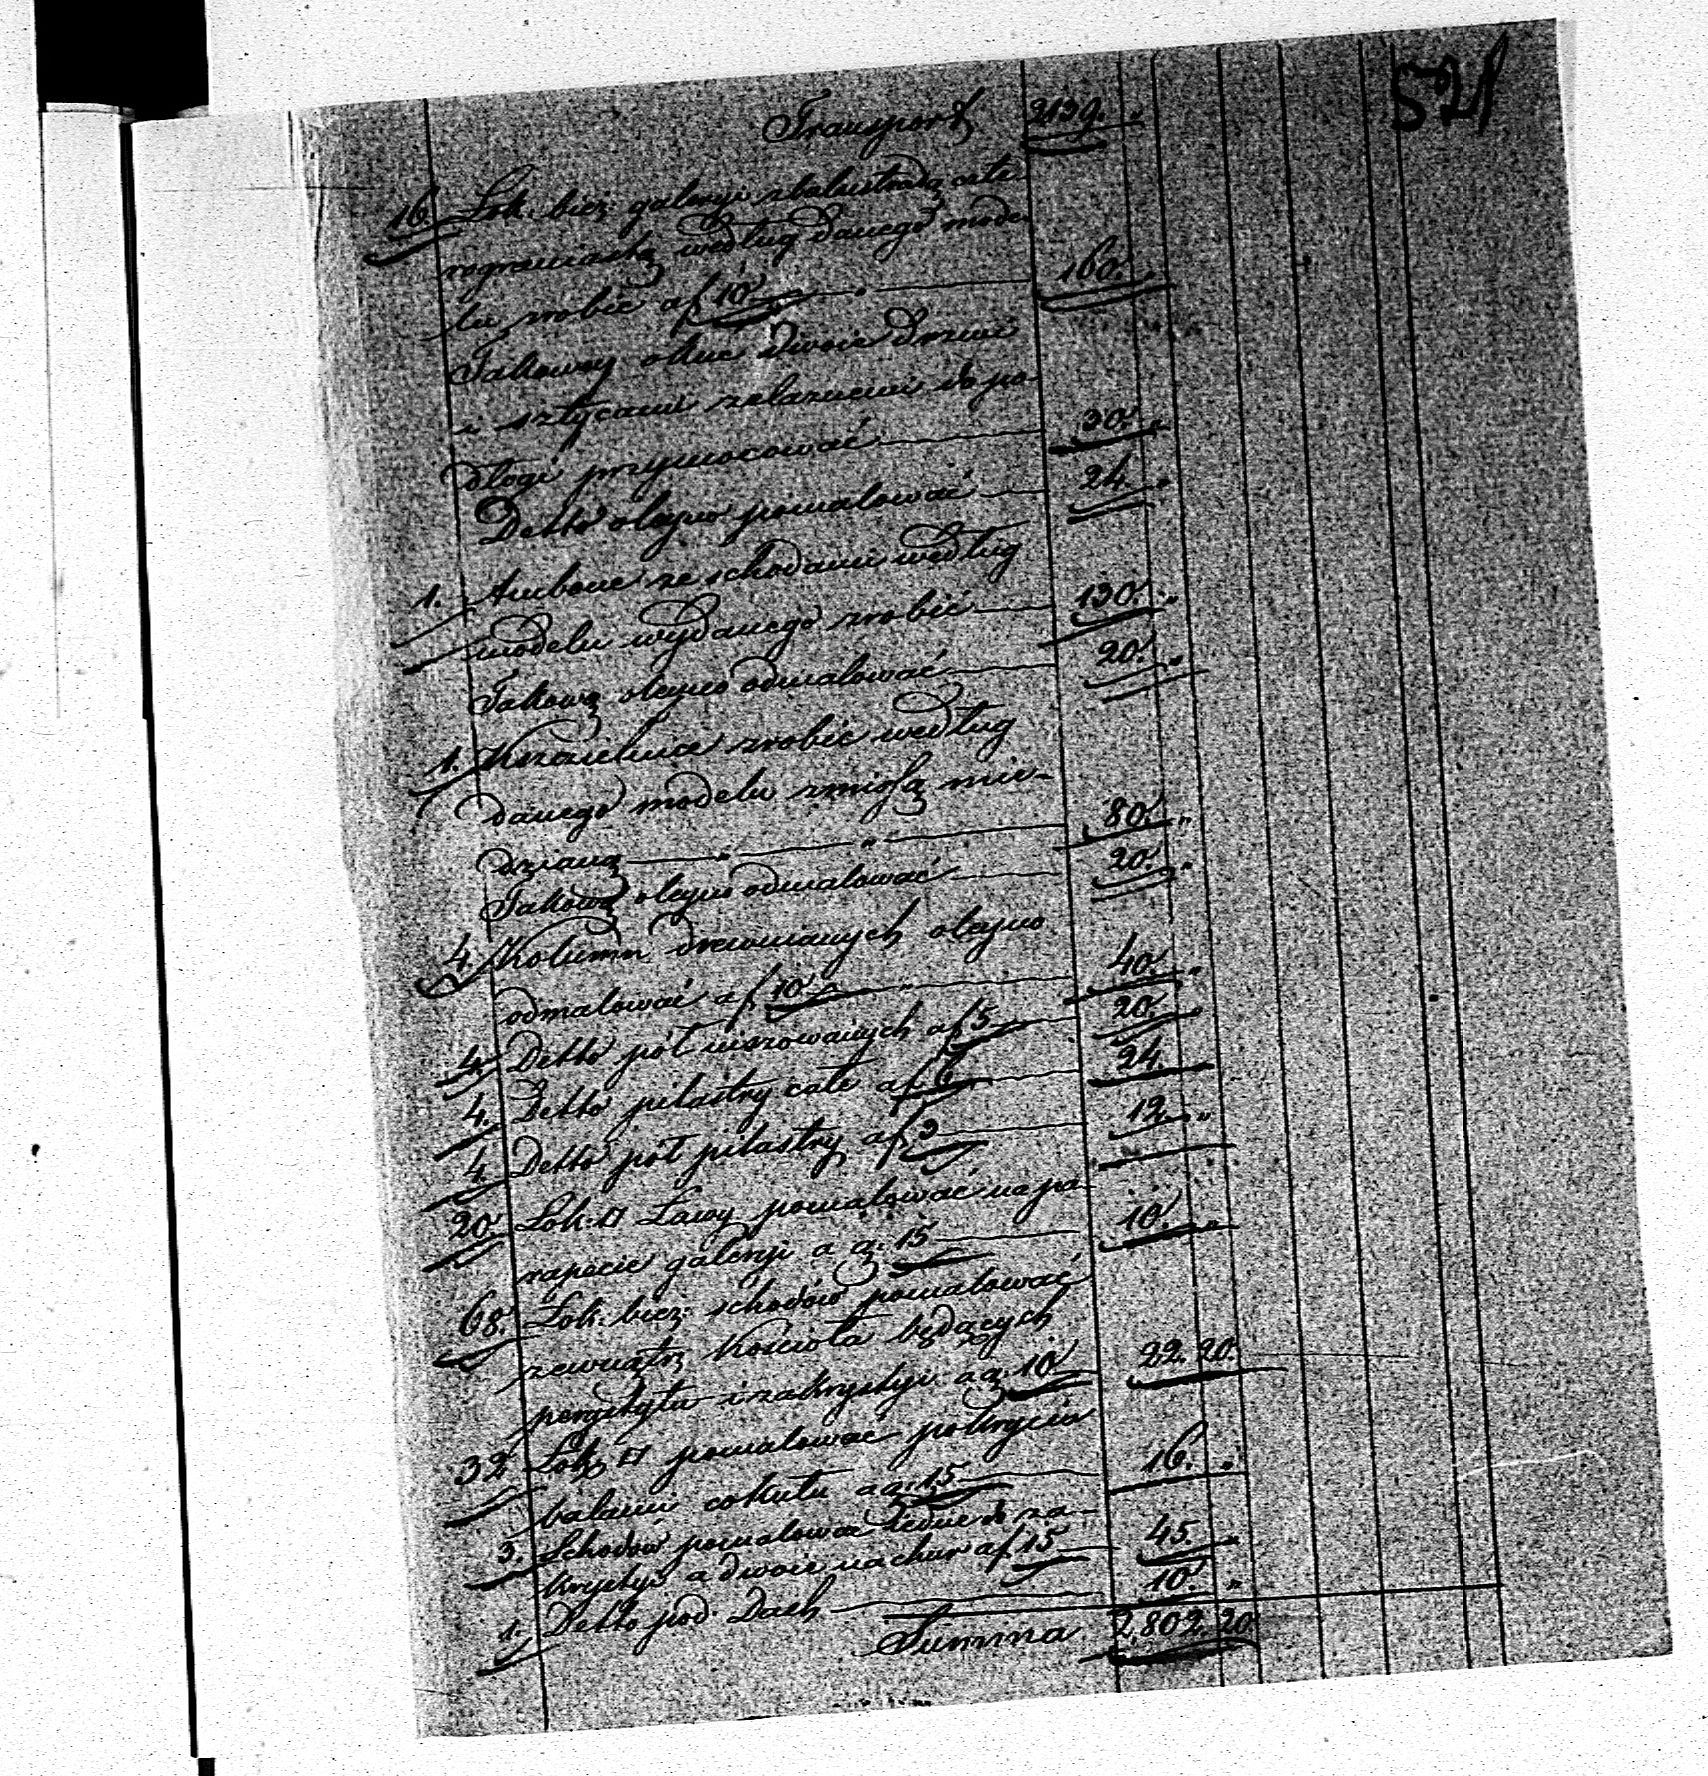 521
Transport 2139. „
16. Łok. bież galeryi zbalustradą czte-
rograniastą według danego mode-
lu zrobić a f 10 „ 160. „
Takowey okuc dwoie drzwi
i sztycami zelaznemi do po-
dłogi przymocować 30. „
Detto olejno pomalować 24. „
1. Ambone ze schodami według
modelu wydanego zrobić 130. „
Takową olejno odmalować 20. „
1. Krzcielnice zrobić według
danego modelu zmissą mie-
dzianą „ „ 80. „
Takową olejno odmalować 20. „
4. Kolumn drewnianych olejno
odmalować a f 10 „ 40. „
4. Detto pół murowanych a f 5 20. „
4. Detto pilastry całe a f 6 24.
4. Detto pół pilastry a f 3 12. „
20. Łok. □ Ławy pomalować na pa-
rapecie galeryi a g. 15 10. „
68. Łok. bież. schodów pomalować
zewnątrz Kościoła będących
peryschtylu i zakrystyi a g. 10 22. 20.
32 Łok □ pomalować pokrycia
balami cokułu a g. 15 16. „
3. Schodów pomalować iedne do za-
krystyi a dwoie na chur a f 15 45. „
1. Detto pod Dach 10. „
Summa 2,802. 20